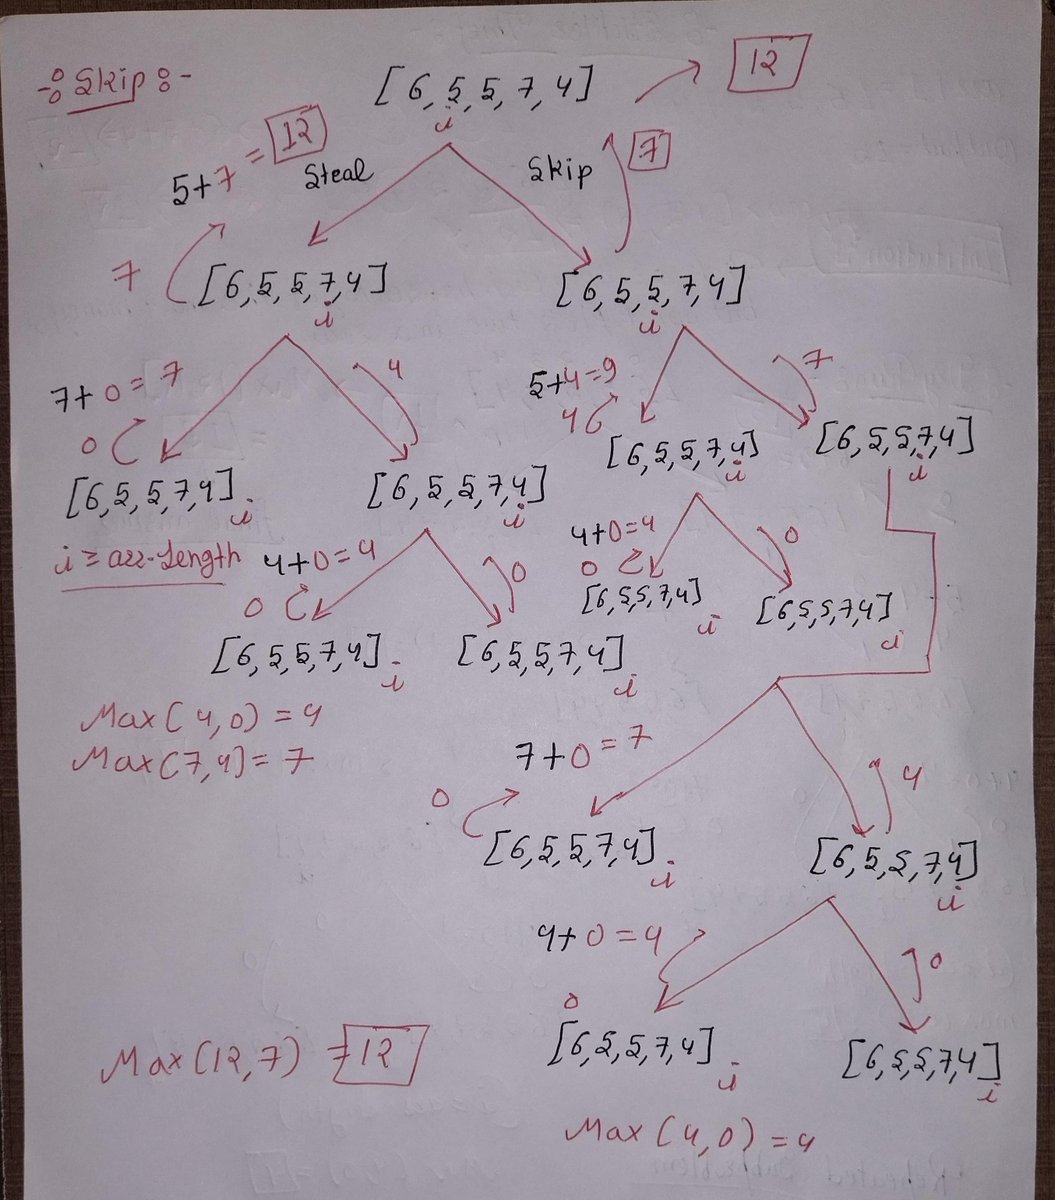 -: Skip :-
[6, 5, 5, 7, 4]
12
i
5+7 = 12
Steal
Skip
7
7
[6, 5, 5, 7, 4]
[6, 5, 5, 7, 4]
i
i
7+0 = 7
4
5+4=9
7
0
4
[6, 5, 5, 7, 4]
[6, 5, 5, 7, 4]
[6, 5, 5, 7, 4]
[6, 5, 5, 7, 4]
i
i
i
i
i ≥ arr.length
4+0 = 4
0
4+0=4
0
0
0
[6, 5, 5, 7, 4]
[6, 5, 5, 7, 4]
i
i
[6, 5, 5, 7, 4]
[6, 5, 5, 7, 4]
i
i
Max(4,0) = 4
Max(7,4) = 7
7+0 = 7
0
4
[6, 5, 5, 7, 4]
[6, 5, 5, 7, 4]
i
i
4+0 = 4
0
0
[6, 5, 5, 7, 4]
[6, 5, 5, 7, 4]
i
i
Max(12,7) = 12
Max(4,0) = 4